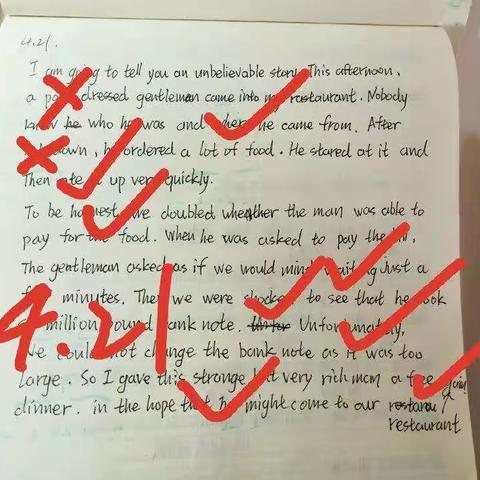 4.21.
I am going to tell you an unbelievable story. This afternoon,
a dressed gentleman came into my restaurant. Nobody
who he was and where he came from. After
down, he ordered a lot of food. He stared at it and
Then ate it up very quickly.
To be honest, we doubled whether the man was able to
pay for the food. When he was asked to pay the
The gentleman asked as if we would mind waiting just a
minutes. Then we were shocked to see that he took
million pound bank note. Unfortunately,
We could not change the bank note as it was too
Large. So I gave this strange but very rich man a free
dinner. in the hope that he might come to our
restaurant
4.21